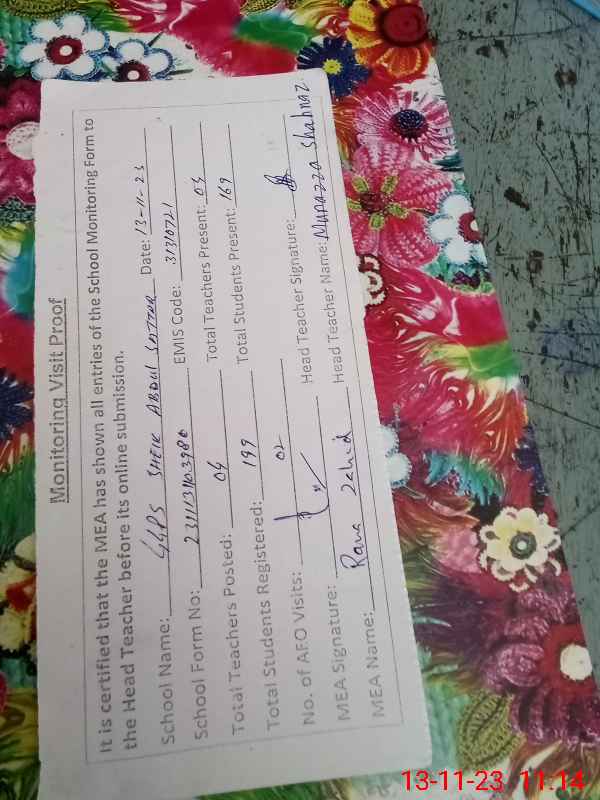 Monitoring Visit Proof
It is certified that the MEA has shown all entries of the School Monitoring Form to
the Head Teacher before its online submission.
School Name: GGPS SHEIK ABDUL SATTAR Date: 13-11-23
School Form No: 231113110.3986 EMIS Code: 31310721
Total Teachers Posted: 04 Total Teachers Present: 03
Total Students Registered: 199 Total Students Present: 169
No. of AFO Visits: 02
MEA Signature: Head Teacher Signature:
MEA Name: Rana Zahid Head Teacher Name: Munazza Shahnaz
13-11-23 11:14